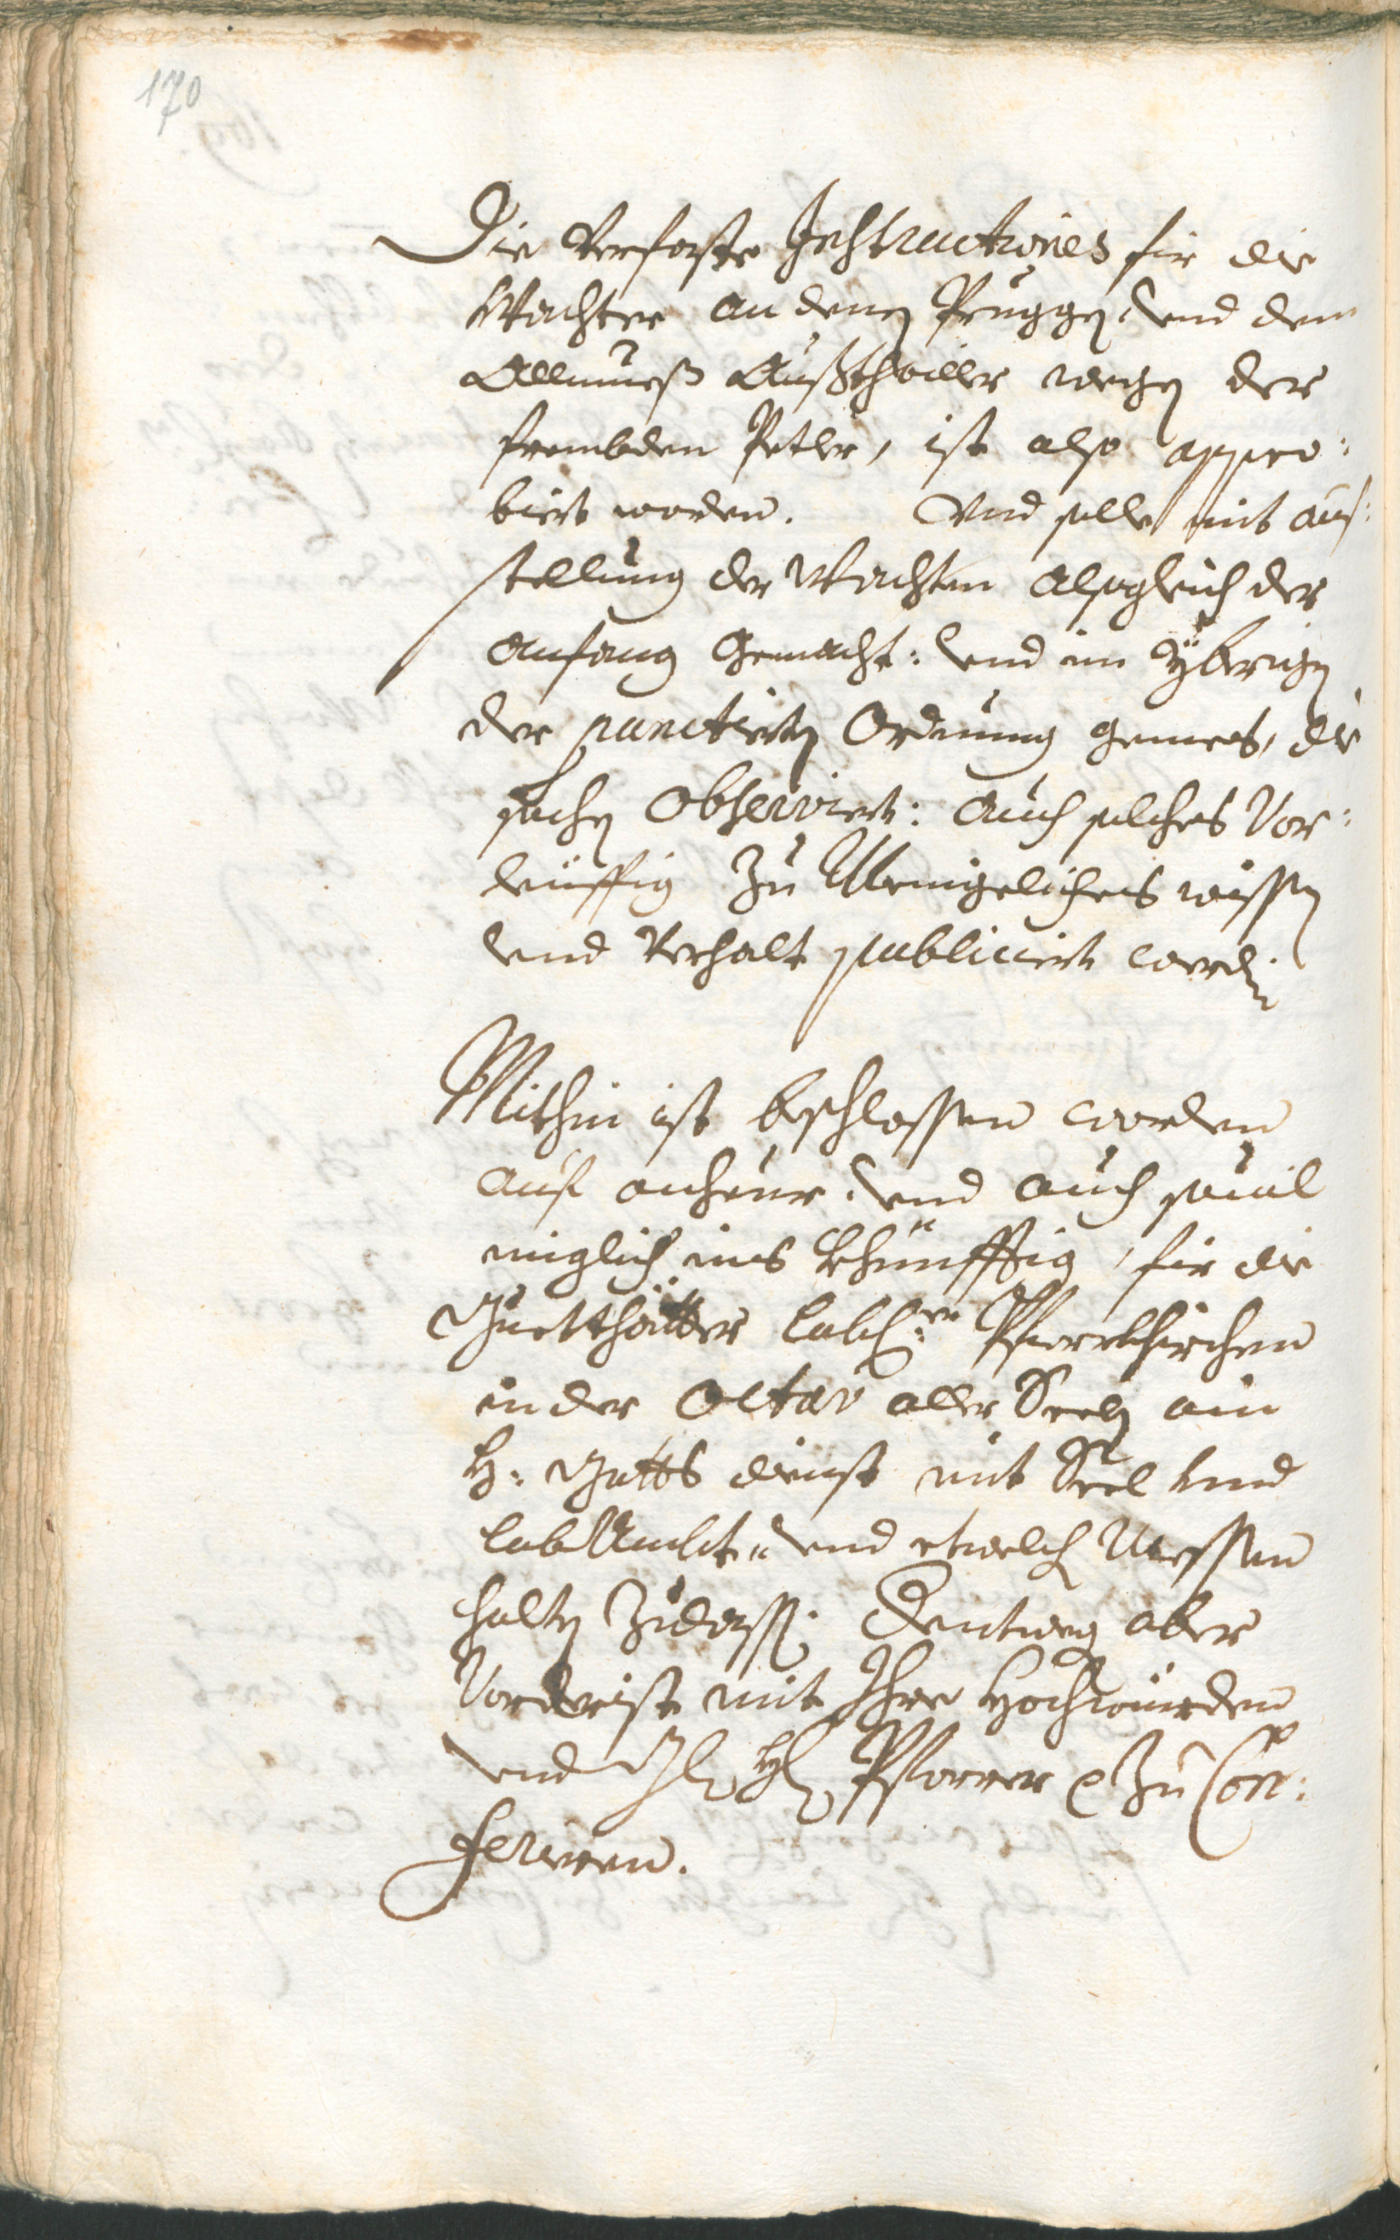 170
Die verfaste Instructiones fir die
Wachter an denen Pruggen, vnd dem
Allmueß Außthailler wegen der
frembden Petler, ist also appro:
biert worden. Vnd solle mit auf:
stellung der Wachten alsogleich der
anfang gemacht: vnd im yberigen
der punctierten Ordnung gemes, die
sachen observiert: auch solches vor:
leüffig zu Menigeliches wissen
vnd verhalt publiciert werden
Mithin ist beschlossen worden
auf anheur, vnd auch souil
miglich ins khünfftig, fir die
Guetthätter lobl: Pfarrkhirchen
in der Octav aller Seelen ain
H: Gotts dienst mit Seel vnd
lob Ambt, vnd etwelch Messen
halten zulassen. Dentweg aber
vorderist mit Ihro Hochwürden
vnd Hl Pfarrer zu Con:
ferieren.